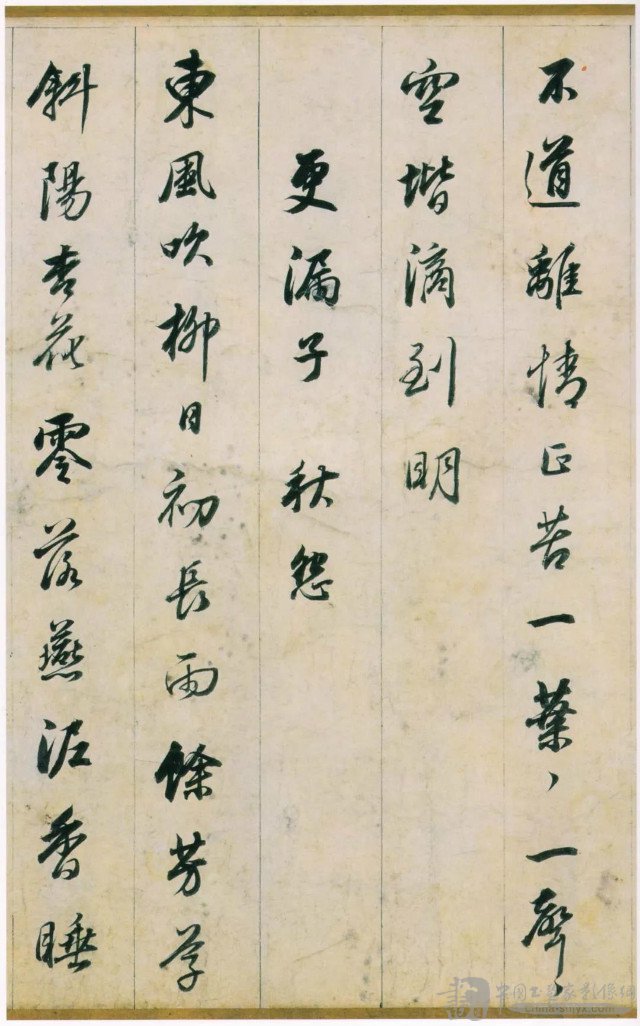 不道離情正苦一葉、一聲、
空堦滴到明
更漏子 秋怨
東風吹柳日初長雨餘芳草
斜陽杏花零落燕泥香睡